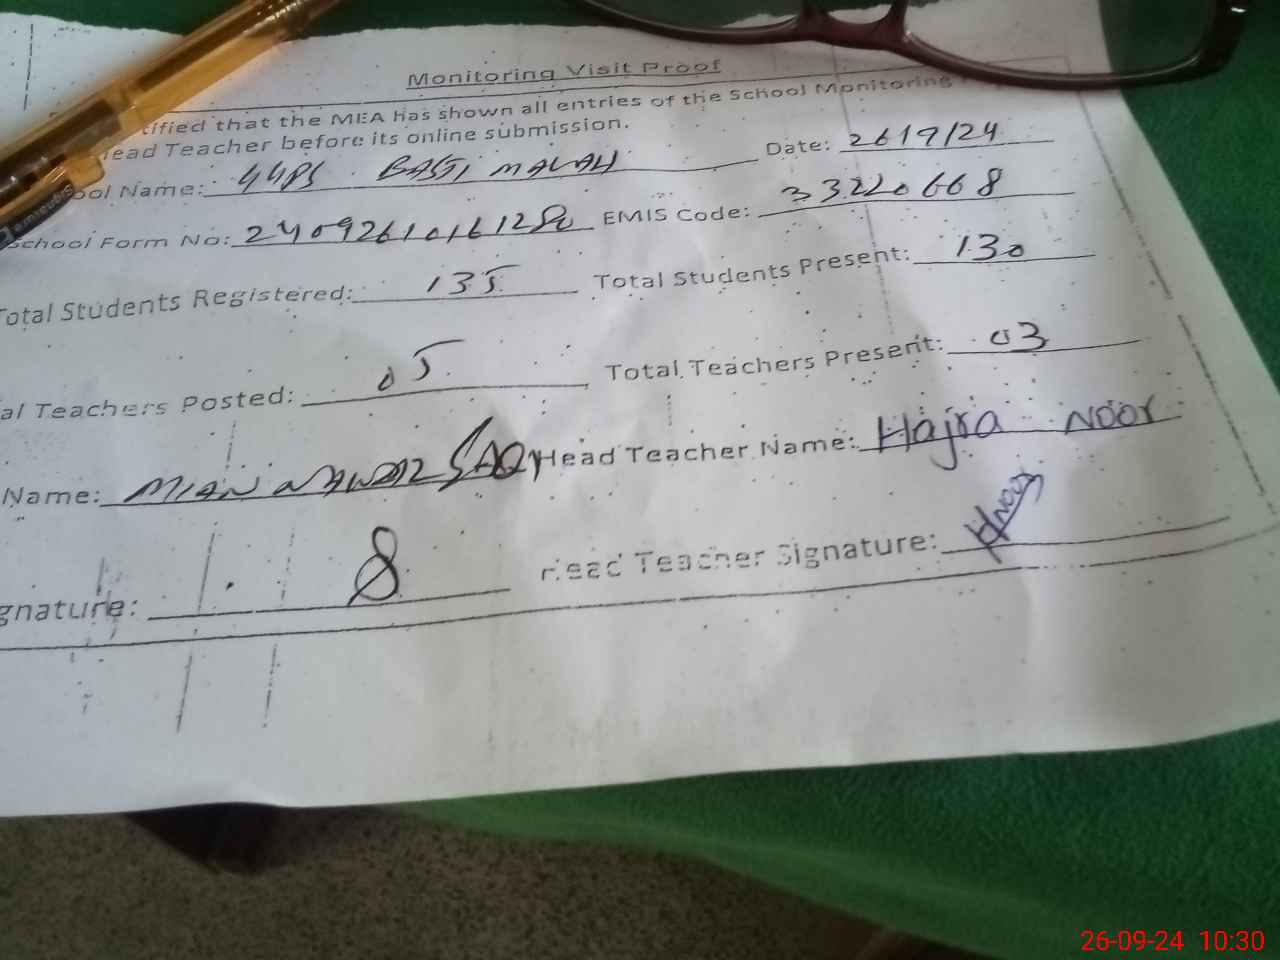 Monitoring Visit Proof
tified that the MEA has shown all entries of the School Monitoring
ead Teacher before its online submission.
ool Name: GGPS BASTI MALAH Date: 26/9/24
School Form No: EMIS Code: 33220668
Total Students Registered: 135 Total Students Present: 130
al Teachers Posted: 05 Total Teachers Present: 03
Name: MIAN NAWAZ SAQI Head Teacher Name: Hajra Noor
gnature: Head Teacher Signature: HNoor
26-09-24 10:30